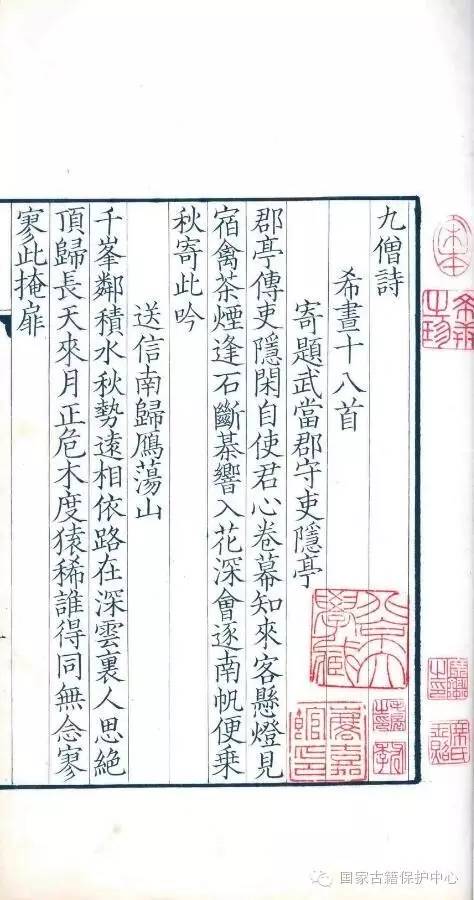 九僧詩
希晝十八首
寄題武當郡守吏隱亭
郡亭傳吏隱閑自使君心卷幕知來客懸燈見
宿禽茶煙逢石斷棊響入花深會逐南帆便乗
秋寄此吟
送信南歸鴈蕩山
千峯鄰積水秋勢遠相依路在深雲裏人思絕
頂歸長天來月正危木度猿稀誰得同無念寥
寥此掩扉
宋本
希世之珍
北京大學藏
國家古籍保护中心